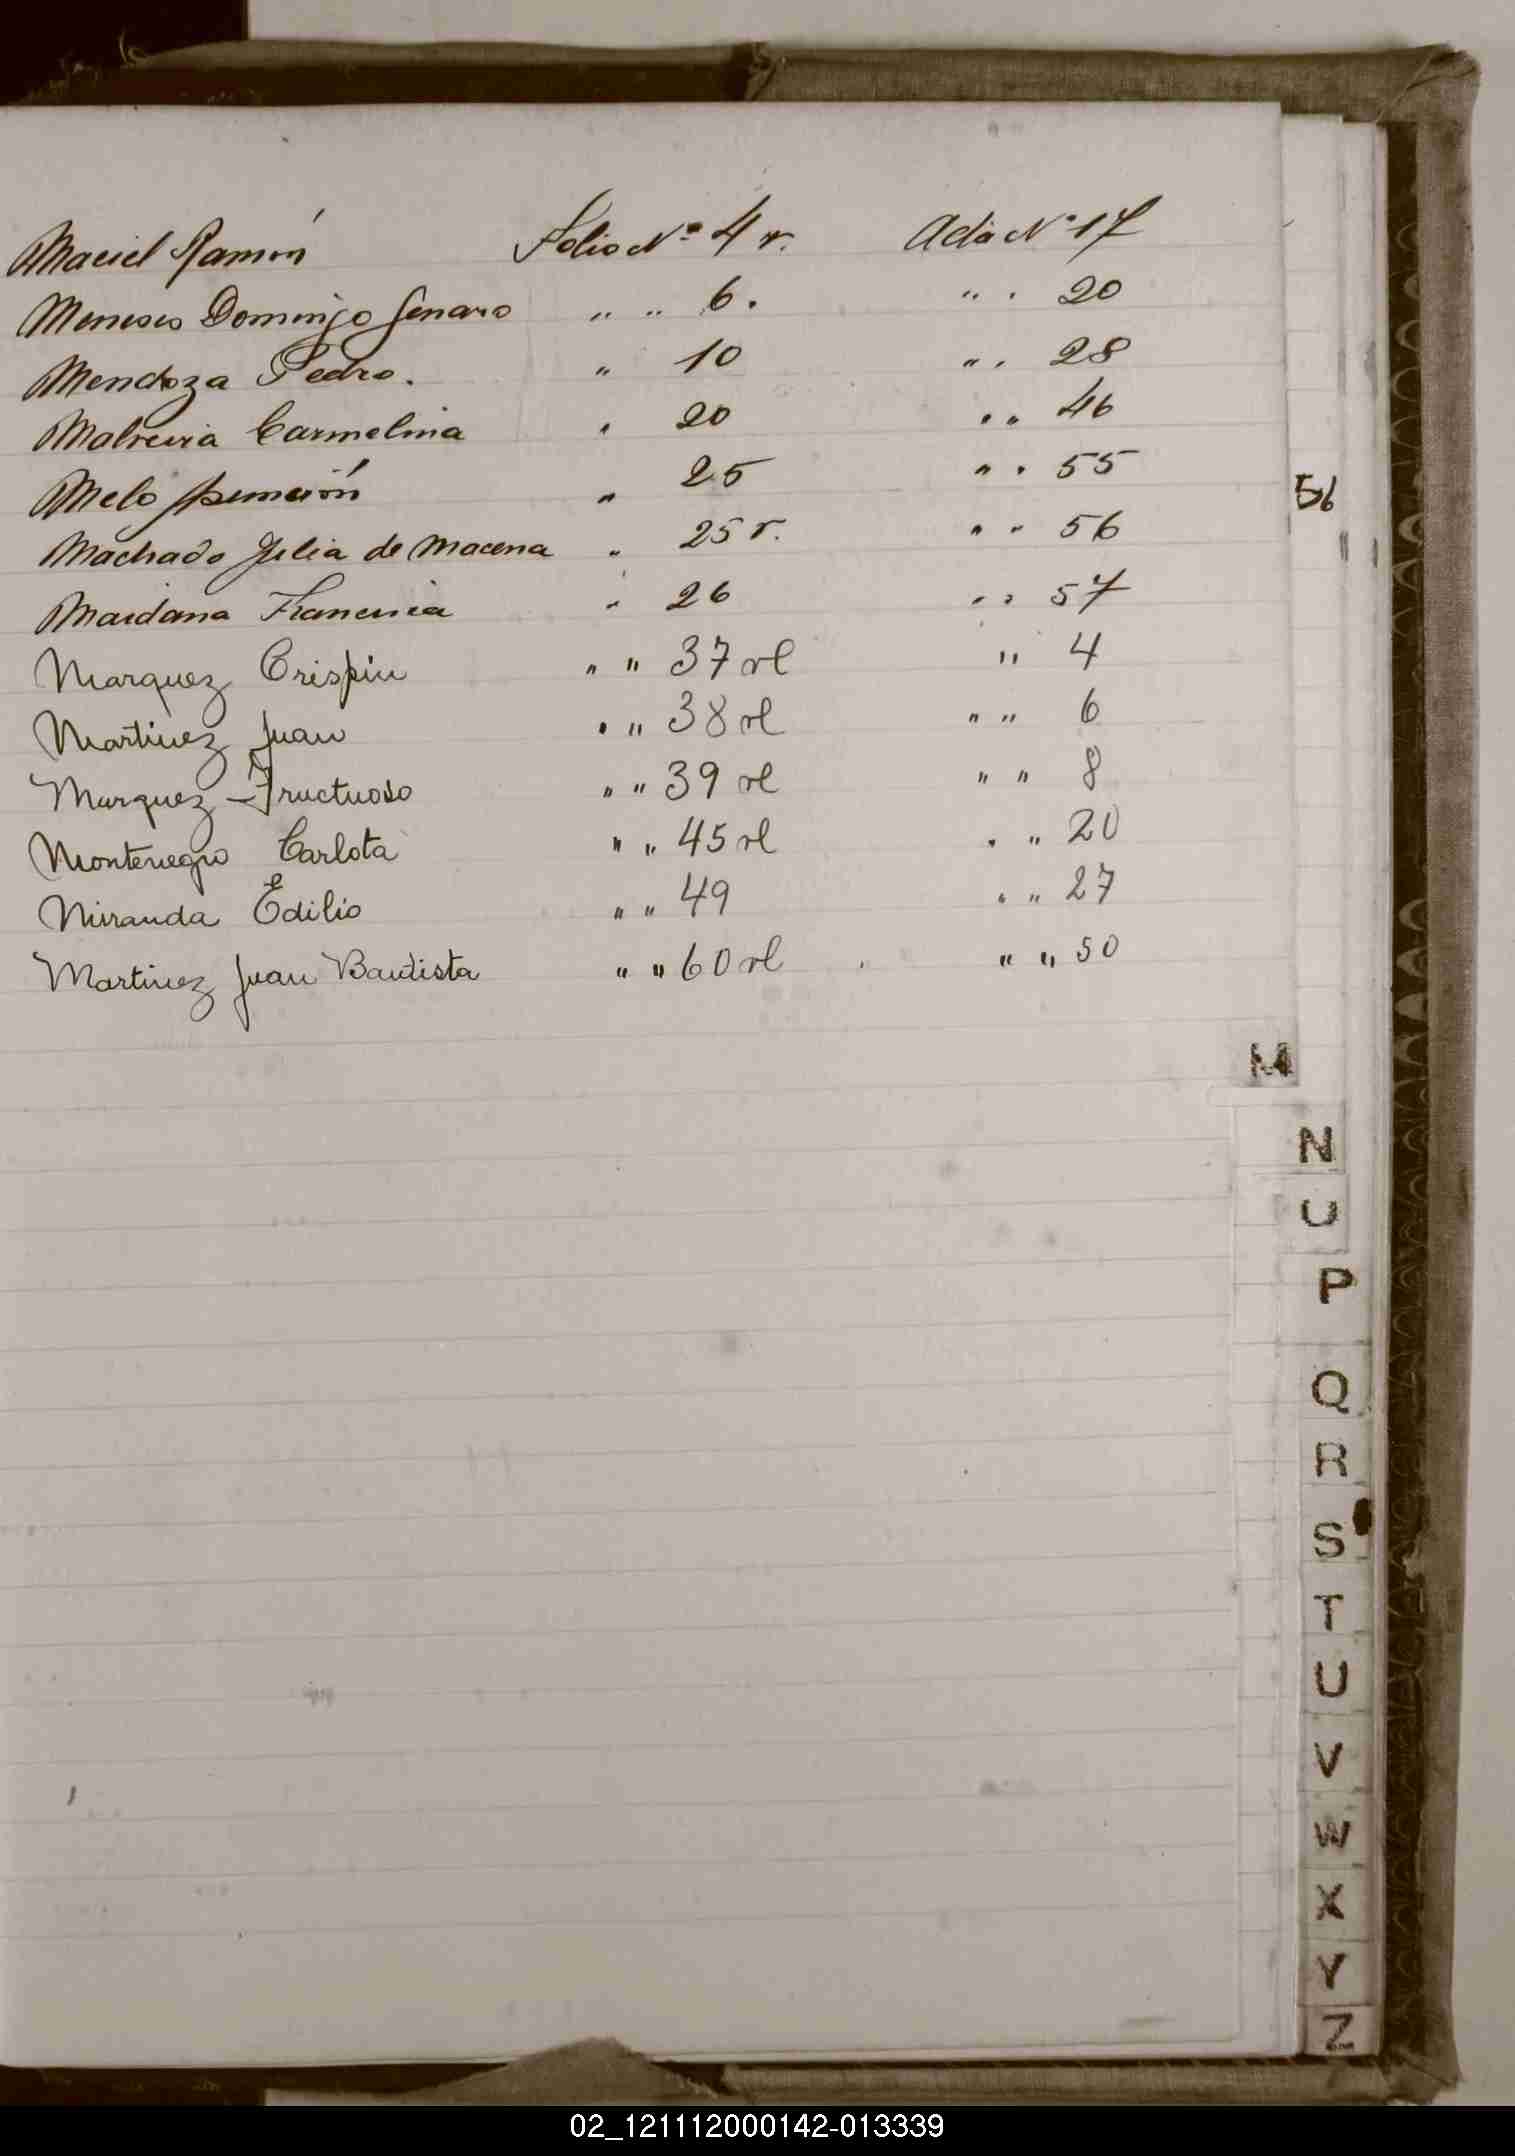 Maciel Ramón Folio Nº 4 r. Acta Nº 17
Meneses Domingo Genaro " " 6. " . 20
Mendoza Pedro. " 10 " . 28
Carmelina " 20 " " 46
Melo Asunción " 25 " " 55
Machado Julia de Macena " 25 r. " " 56
Maidana Francisca " 26 " " 57
Marquez Crispin " " 37 vl " 4
Martinez Juan " " 38 vl " " 6
Marquez Fructuoso " " 39 vl " " 8
Montenegro Carlota " " 45 vl " " 20
Miranda Edilio " " 49 " " 27
Martinez Juan Bautista " " 60 vl " " 50
56
M
N
O
P
Q
R
S
T
U
V
W
X
Y
Z
02_121112000142-013339